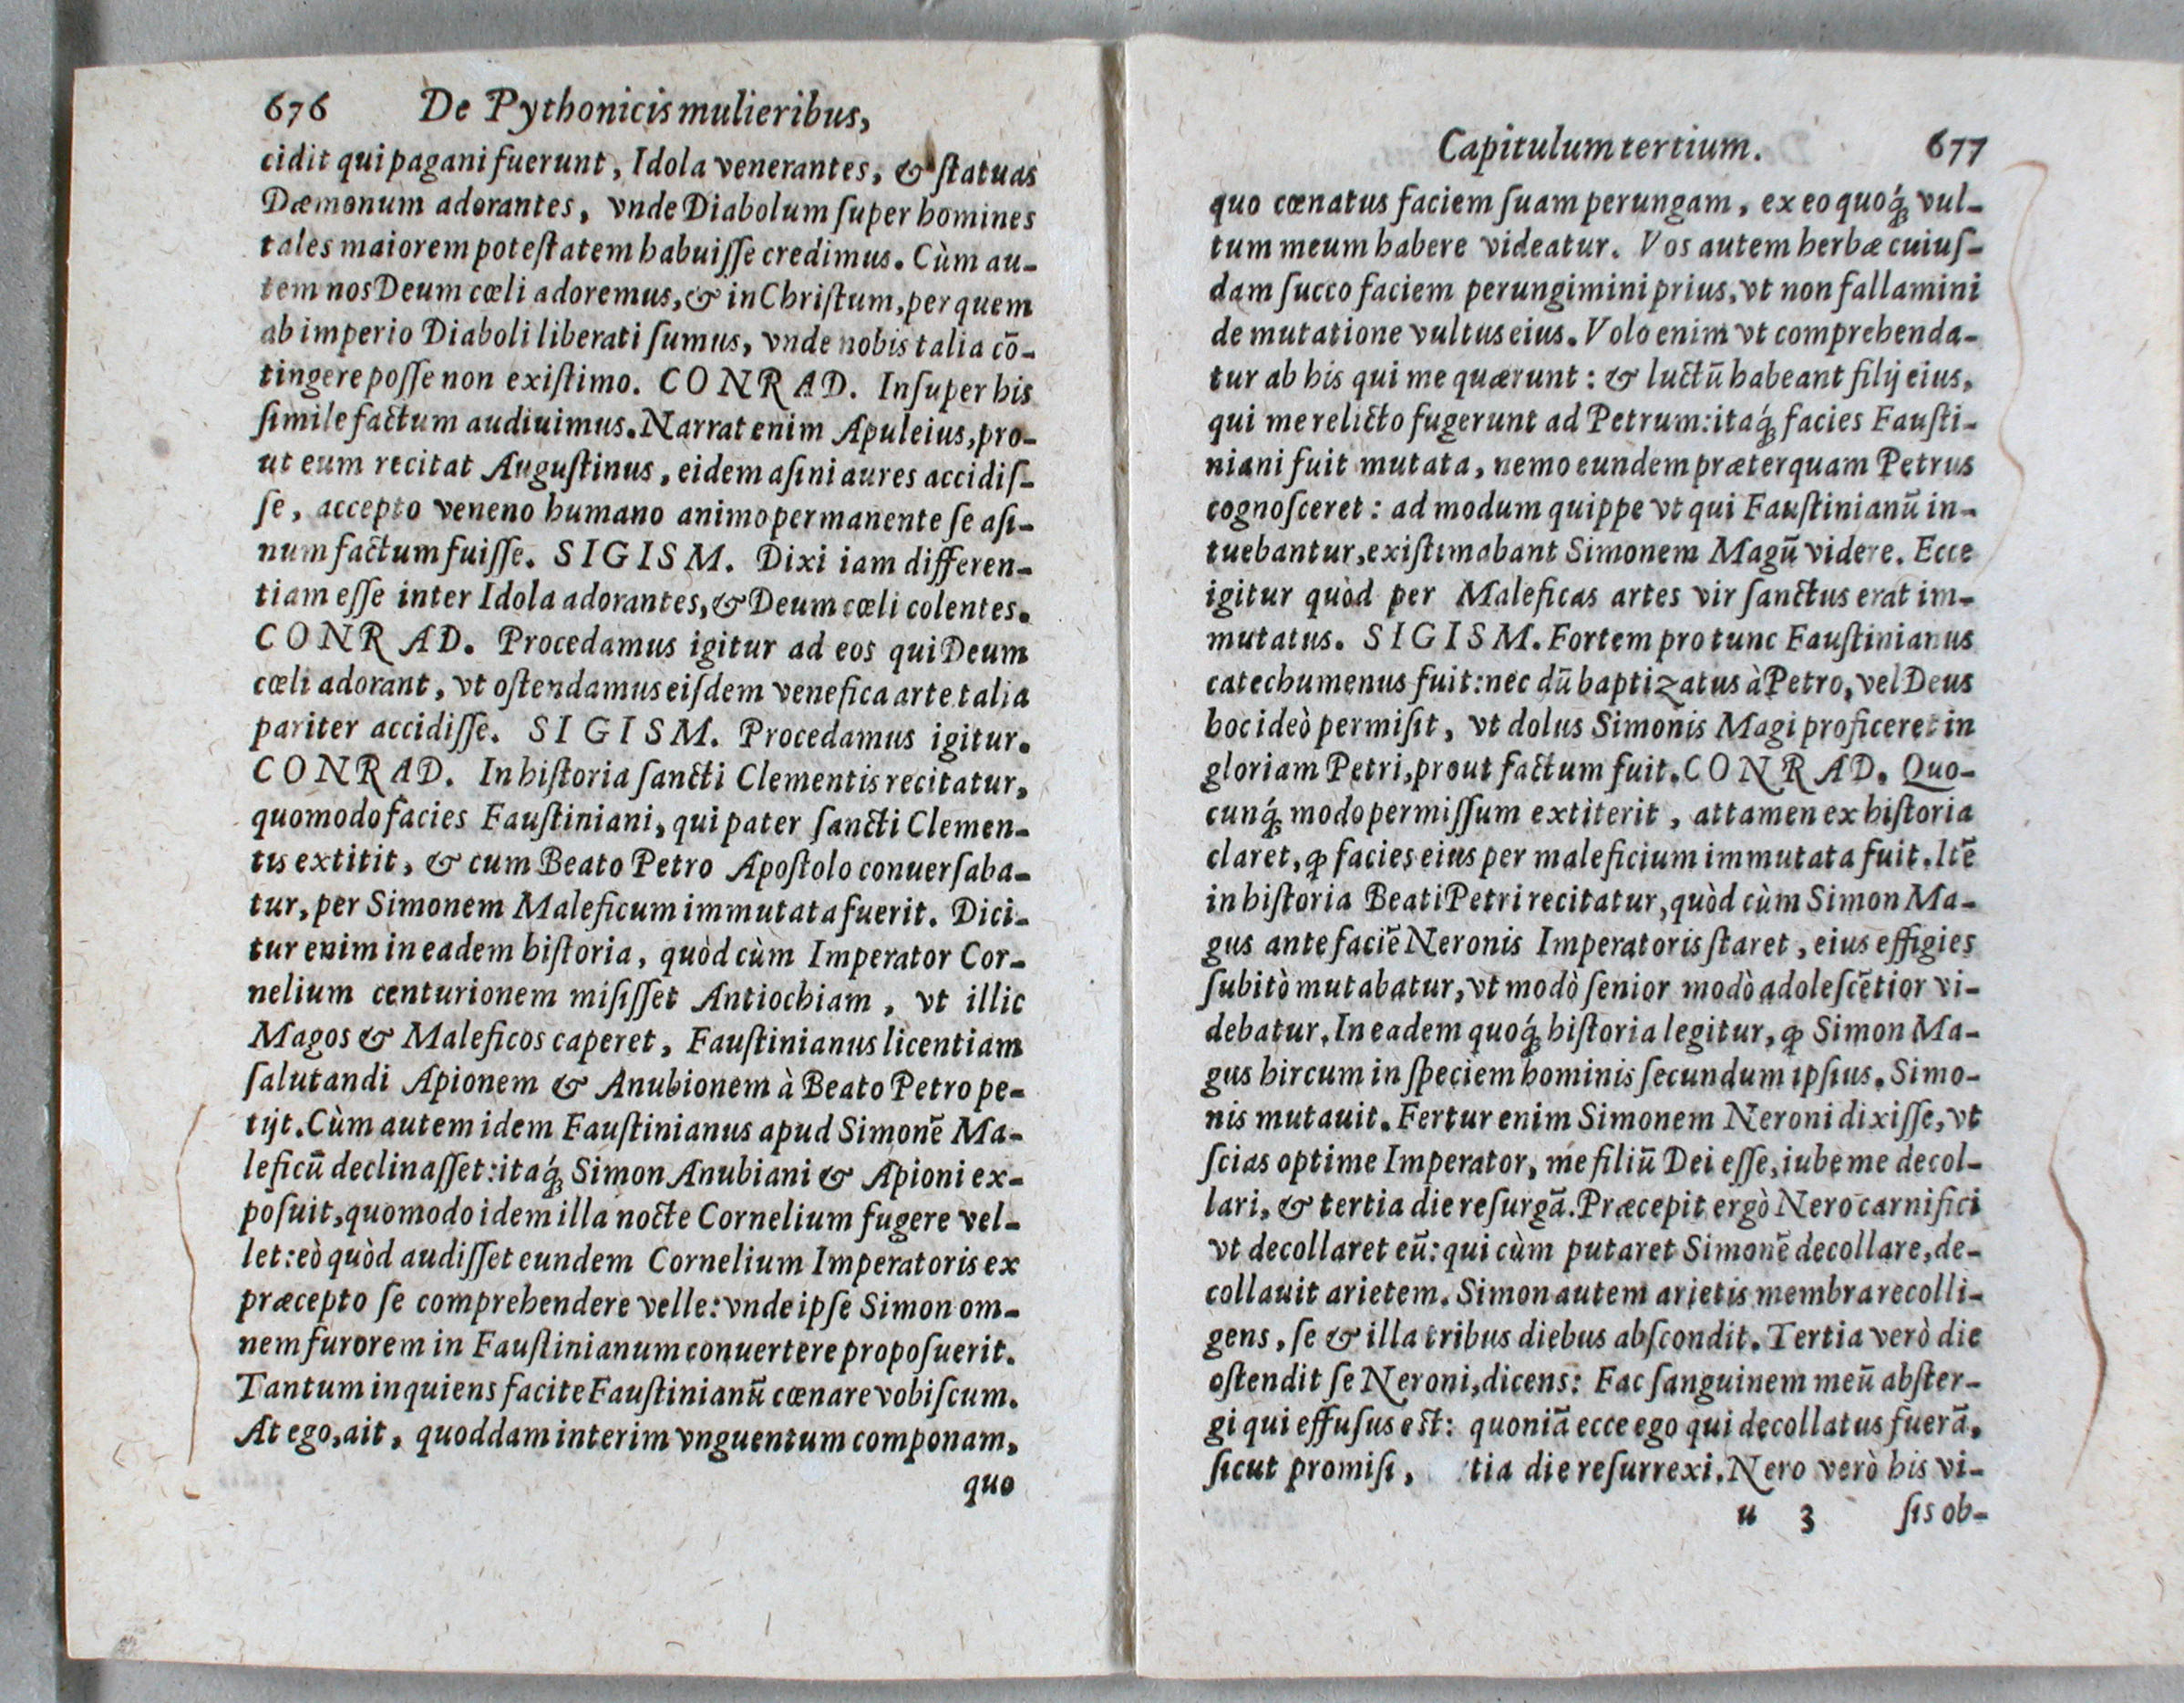 676 De Pythonicis mulieribus,
cidit qui pagani fuerunt, Idola venerantes, & ſtatuas
Dæmonum adorantes, vnde Diabolum ſuper homines
tales maiorem poteſtatem habuiſſe credimus. Cùm au-
tem nos Deum cœli adoremus, & in Chriſtum, per quem
ab imperio Diaboli liberati ſumus, vnde nobis talia cō-
tingere poſſe non exiſtimo. CONRAD. Inſuper his
ſimile factum audiuimus. Narrat enim Apuleius, pro-
ut eum recitat Auguſtinus, eidem aſini aures accidiſ-
ſe, accepto veneno humano animo permanente ſe aſi-
num factum fuiſſe. SIGISM. Dixi iam differen-
tiam eſſe inter Idola adorantes, & Deum cœli colentes.
CONRAD. Procedamus igitur ad eos qui Deum
cœli adorant, vt oſtendamus eiſdem venefica arte talia
pariter accidiſſe. SIGISM. Procedamus igitur.
CONRAD. In hiſtoria ſancti Clementis recitatur,
quomodo facies Fauſtiniani, qui pater ſancti Clemen-
tis extitit, & cum Beato Petro Apoſtolo conuerſaba-
tur, per Simonem Maleficum immutata fuerit. Dici-
tur enim in eadem hiſtoria, quòd cùm Imperator Cor-
nelium centurionem miſiſſet Antiochiam, vt illic
Magos & Maleficos caperet, Fauſtinianus licentiam
ſalutandi Apionem & Anubionem à Beato Petro pe-
tijt. Cùm autem idem Fauſtinianus apud Simonē Ma-
leficū declinaſſet: itaq́; Simon Anubiani & Apioni ex-
poſuit, quomodo idem illa nocte Cornelium fugere vel-
let: eò quòd audiſſet eundem Cornelium Imperatoris ex
præcepto ſe comprehendere velle: vnde ipſe Simon om-
nem furorem in Fauſtinianum conuertere propoſuerit.
Tantum inquiens facite Fauſtinianū cœnare vobiſcum.
At ego, ait, quoddam interim vnguentum componam,
quo
Capitulum tertium. 677
quo cœnatus faciem ſuam perungam, ex eo quoq́; vul-
tum meum habere videatur. Vos autem herbæ cuiuſ-
dam ſucco faciem perungimini prius, vt non fallamini
de mutatione vultus eius. Volo enim vt comprehenda-
tur ab his qui me quærunt: & luctū habeant filij eius,
qui me relicto fugerunt ad Petrum: itaq́; facies Fauſti-
niani fuit mutata, nemo eundem præterquam Petrus
cognoſceret: ad modum quippe vt qui Fauſtinianū in-
tuebantur, exiſtimabant Simonem Magū videre. Ecce
igitur quòd per Maleficas artes vir ſanctus erat im-
mutatus. SIGISM. Fortem pro tunc Fauſtinianus
catechumenus fuit: nec dū baptizatus à Petro, vel Deus
hoc ideò permiſit, vt dolus Simonis Magi proficeret in
gloriam Petri, prout factum fuit. CONRAD. Quo-
cunq́; modo permiſſum extiterit, attamen ex hiſtoria
claret, ꝙ facies eius per maleficium immutata fuit. Itē
in hiſtoria Beati Petri recitatur, quòd cùm Simon Ma-
gus ante faciē Neronis Imperatoris ſtaret, eius effigies
ſubitò mutabatur, vt modò ſenior modò adoleſcētior vi-
debatur. In eadem quoq́; hiſtoria legitur, ꝙ Simon Ma-
gus hircum in ſpeciem hominis ſecundum ipſius. Simo-
nis mutauit. Fertur enim Simonem Neroni dixiſſe, vt
ſcias optime Imperator, me filiū Dei eſſe, iube me decol-
lari, & tertia die reſurgā. Præcepit ergò Nero carnifici
vt decollaret eū: qui cùm putaret Simonē decollare, de-
collauit arietem. Simon autem arietis membra recolli-
gens, ſe & illa tribus diebus abſcondit. Tertia verò die
oſtendit ſe Neroni, dicens: Fac ſanguinem meū abſter-
gi qui effuſus eſt: quoniā ecce ego qui decollatus fuerā,
ſicut promiſi, tia die reſurrexi. Nero verò his vi-
u 3 ſis ob-